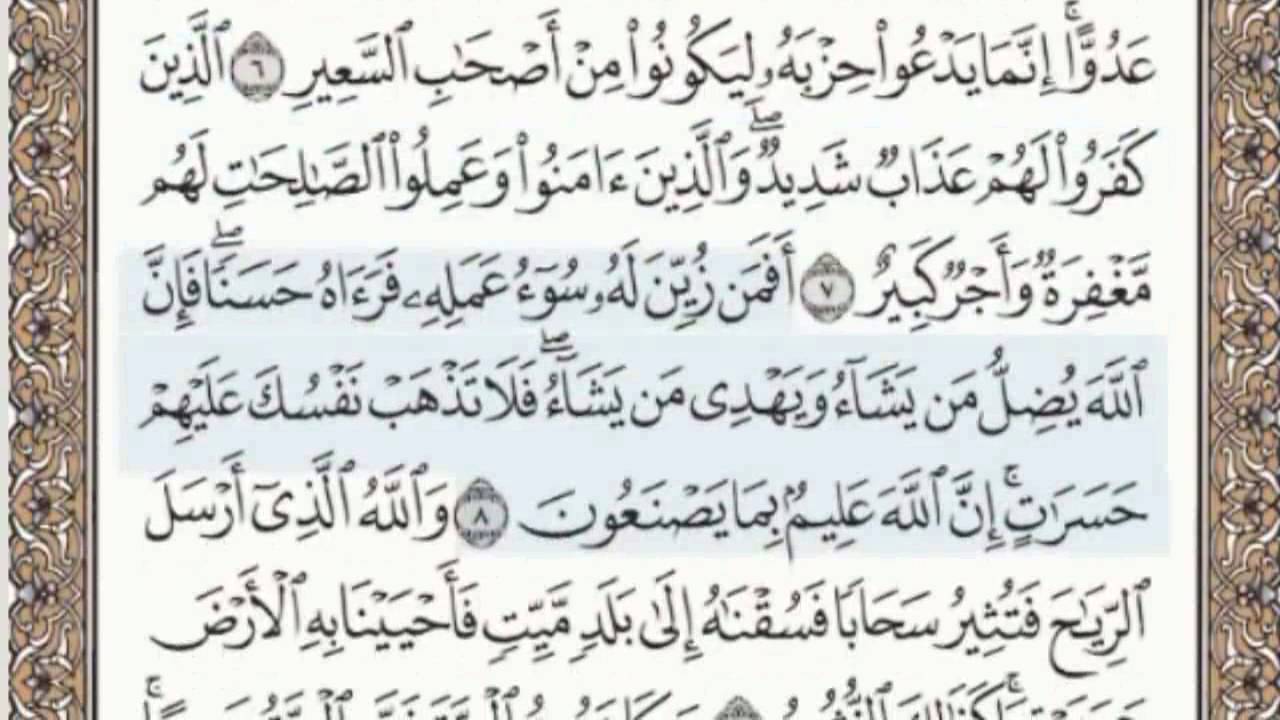 عَدُوًّا ۚ إِنَّمَا يَدْعُوا۟ حِزْبَهُۥ لِيَكُونُوا۟ مِنْ أَصْحَـٰبِ ٱلسَّعِيرِ ٦ ٱلَّذِينَ
كَفَرُوا۟ لَهُمْ عَذَابٌ شَدِيدٌ ۖ وَٱلَّذِينَ ءَامَنُوا۟ وَعَمِلُوا۟ ٱلصَّـٰلِحَـٰتِ لَهُم
مَّغْفِرَةٌ وَأَجْرٌ كَبِيرٌ ٧ أَفَمَن زُيِّنَ لَهُۥ سُوٓءُ عَمَلِهِۦ فَرَءَاهُ حَسَنًا ۖ فَإِنَّ
ٱللَّهَ يُضِلُّ مَن يَشَآءُ وَيَهْدِى مَن يَشَآءُ ۖ فَلَا تَذْهَبْ نَفْسُكَ عَلَيْهِمْ
حَسَرَٰتٍ ۚ إِنَّ ٱللَّهَ عَلِيمٌۢ بِمَا يَصْنَعُونَ ٨ وَٱللَّهُ ٱلَّذِىٓ أَرْسَلَ
ٱلرِّيَـٰحَ فَتُثِيرُ سَحَابًا فَسُقْنَـٰهُ إِلَىٰ بَلَدٍ مَّيِّتٍ فَأَحْيَيْنَا بِهِ ٱلْأَرْضَ